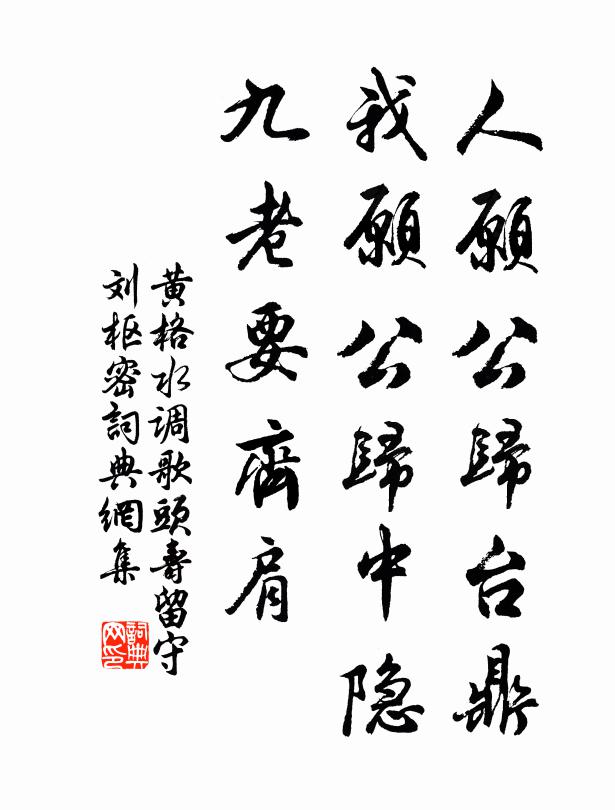 人願公歸台鼎
我願公歸中隐
九老要齊肩
黄格水调歌頭壽留守
刘枢密詞典網集
詞典网印